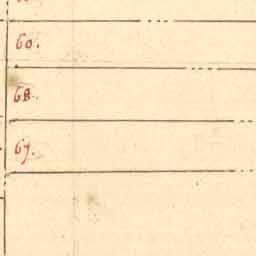 60.
68.
67.